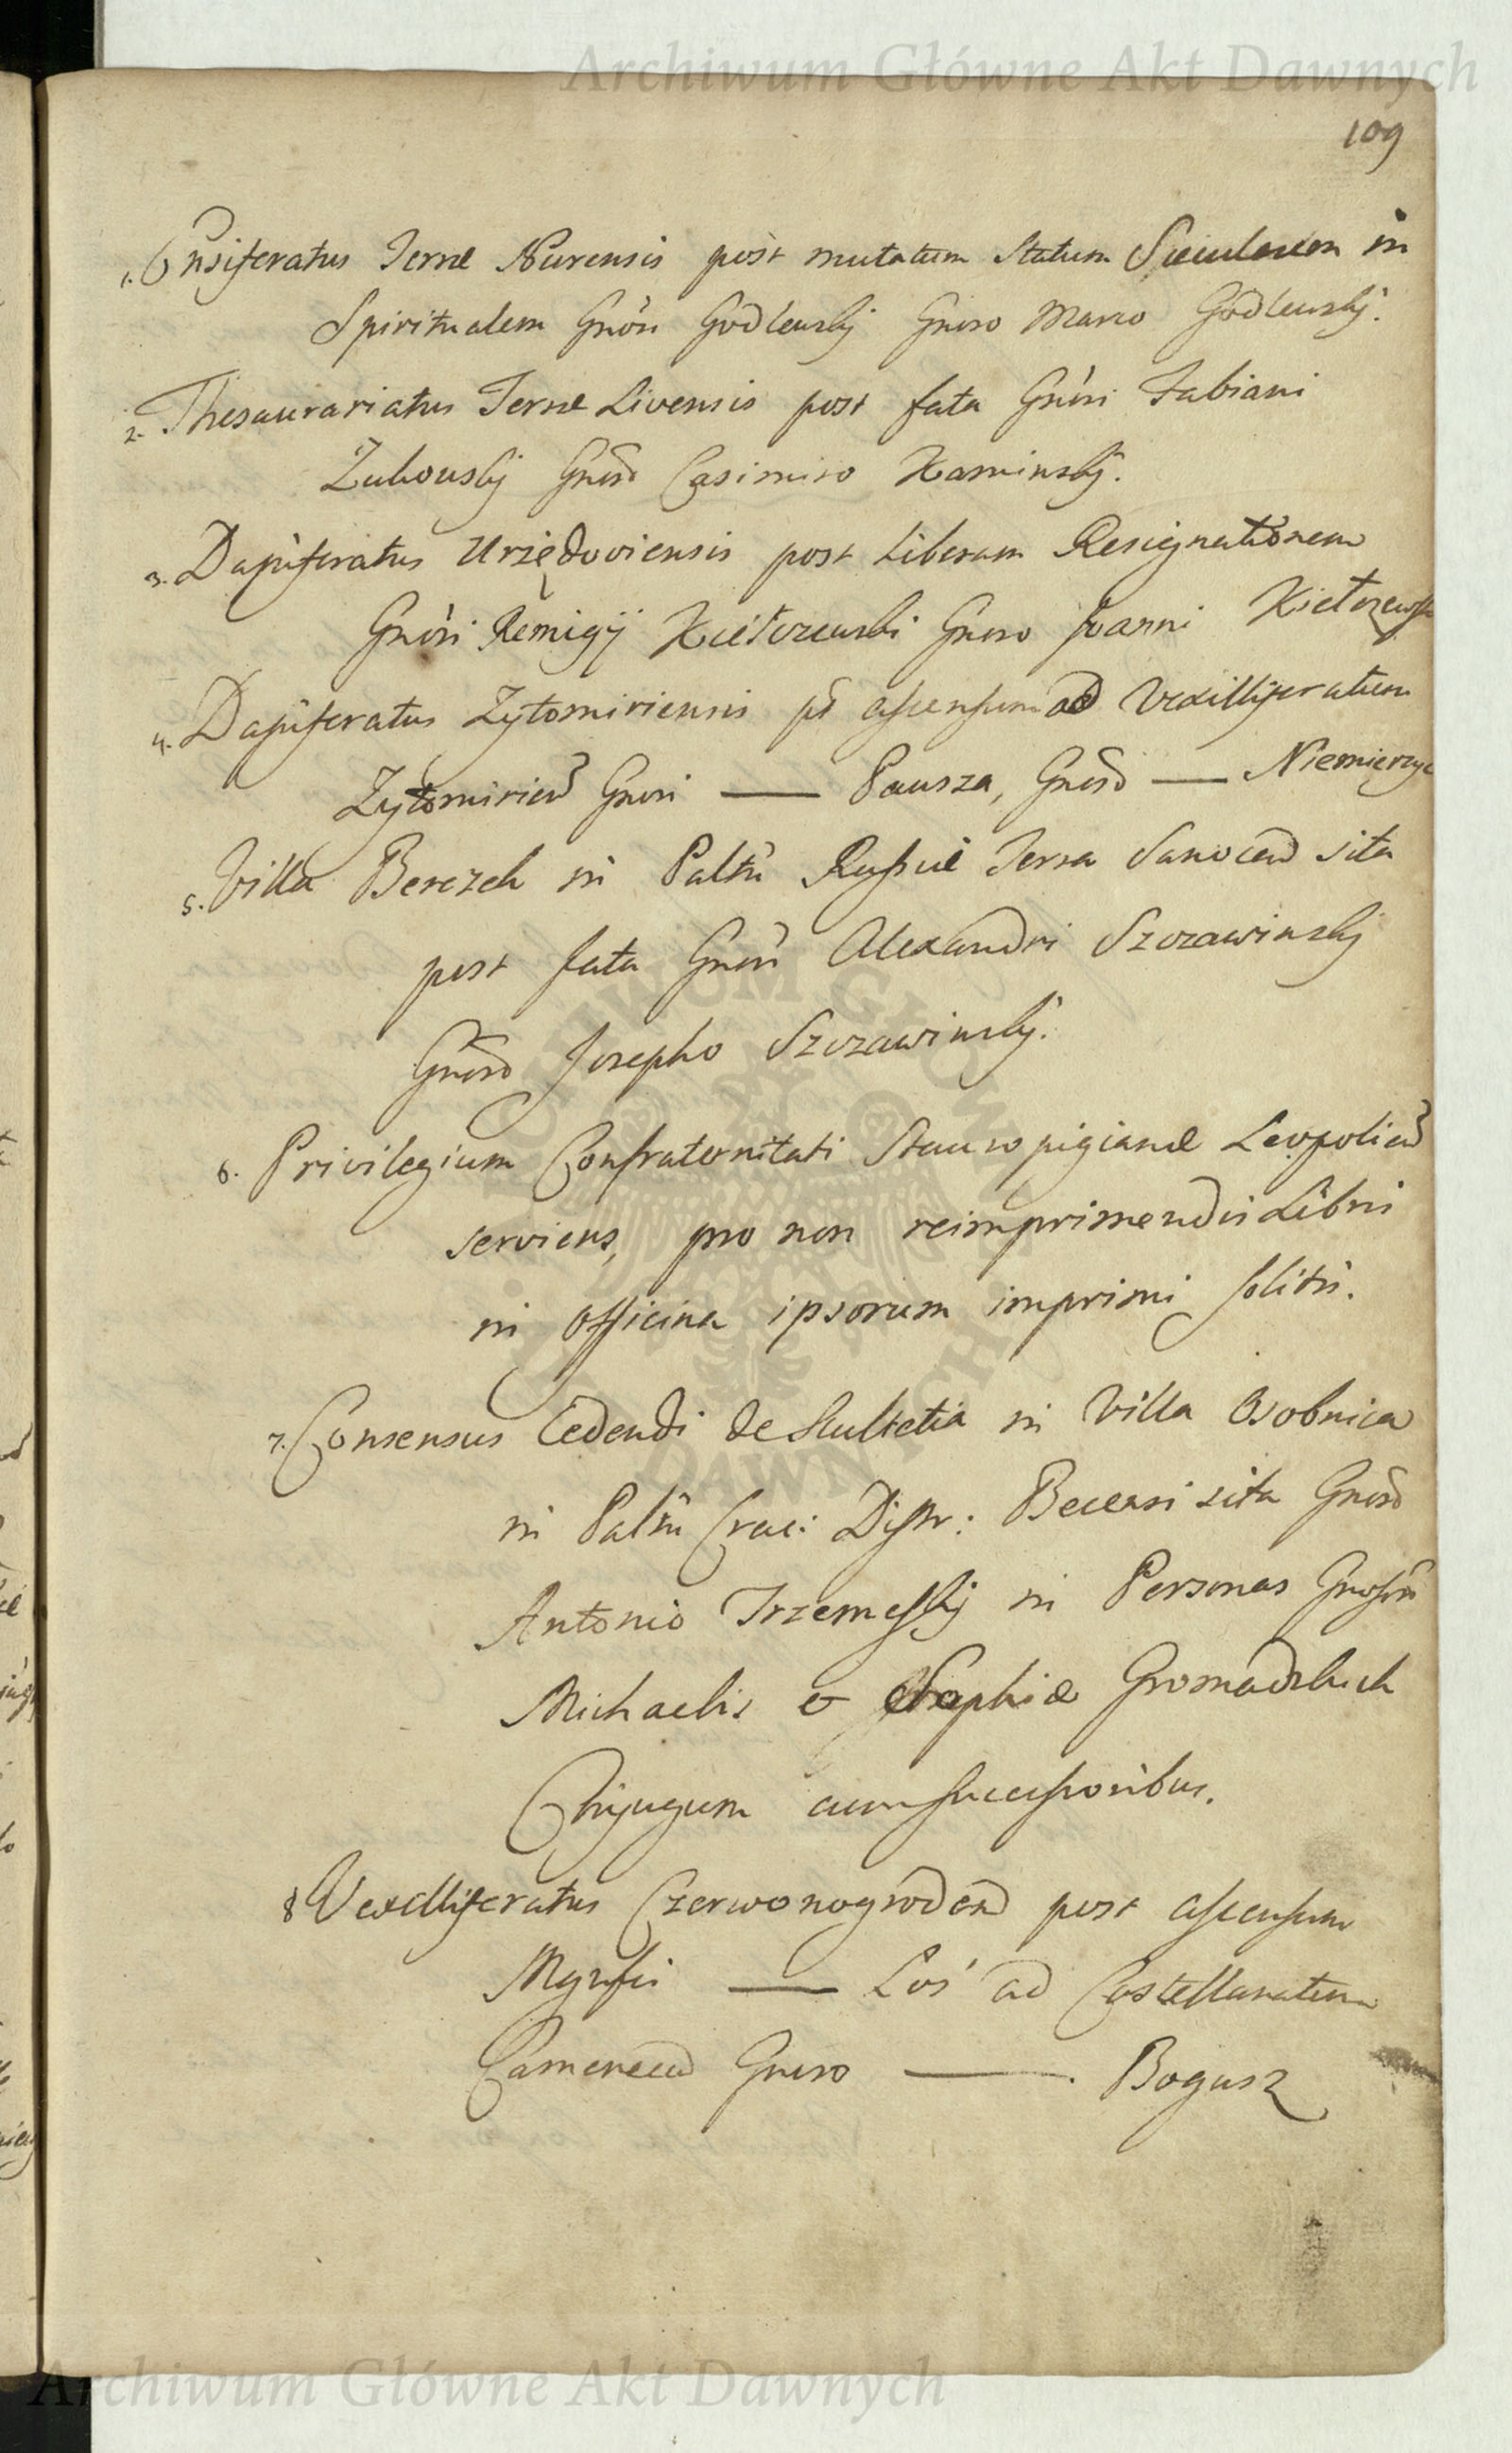 Archiwum Główne Akt Dawnych
109
1. Ensiferatus Terræ Nurensis post mutatum Statum Sæcularem in
Spiritualem Gnosi Godlewskj Gnoso Marco Godlewskj.
2. Thesaurariatus Terræ Livensis post fata Gnosi Fabiani
Zubowskj Gnoso Casimiro Kaminskj.
3. Dapiferatus Urzędoviensis post Liberam Resignationem
Gnosi Remigij Kiełczewski Gnoso Joanni Kiełczewsk
4. Dapiferatus Zytomiriensis pt ascensum ad Vexilliferatum
Zytomirien Gnosi — Pausza, Gnoso — Niemierzyc
5. Villa Berezek in Paltu Russiæ Terra Sanocen sita
post fata Gnosi Alexandri Szczawinskj
Gnoso Josepho Szczawinskj.
6. Privilegium Confraternitati Stauropigianæ Leopolien
serviens, pro non reimprimendis Libris
in officina ipsorum imprimi solitis.
7. Consensus Cedendi de Scultetia in Villa Osobnica
in Paltu Crac: Distr: Becensi sita Gnoso
Antonio Trzemeskj in Personas Gnosor
Michaelis & Sophiæ Gromadzkich
Conjugum cum successoribus.
8 Vexilliferatus Czerwonogroden post ascensum
Mgnfici — Łoś ad Castellanatum
Camenecen Gnoso —. Bogusz
Archiwum Główne Akt Dawnych